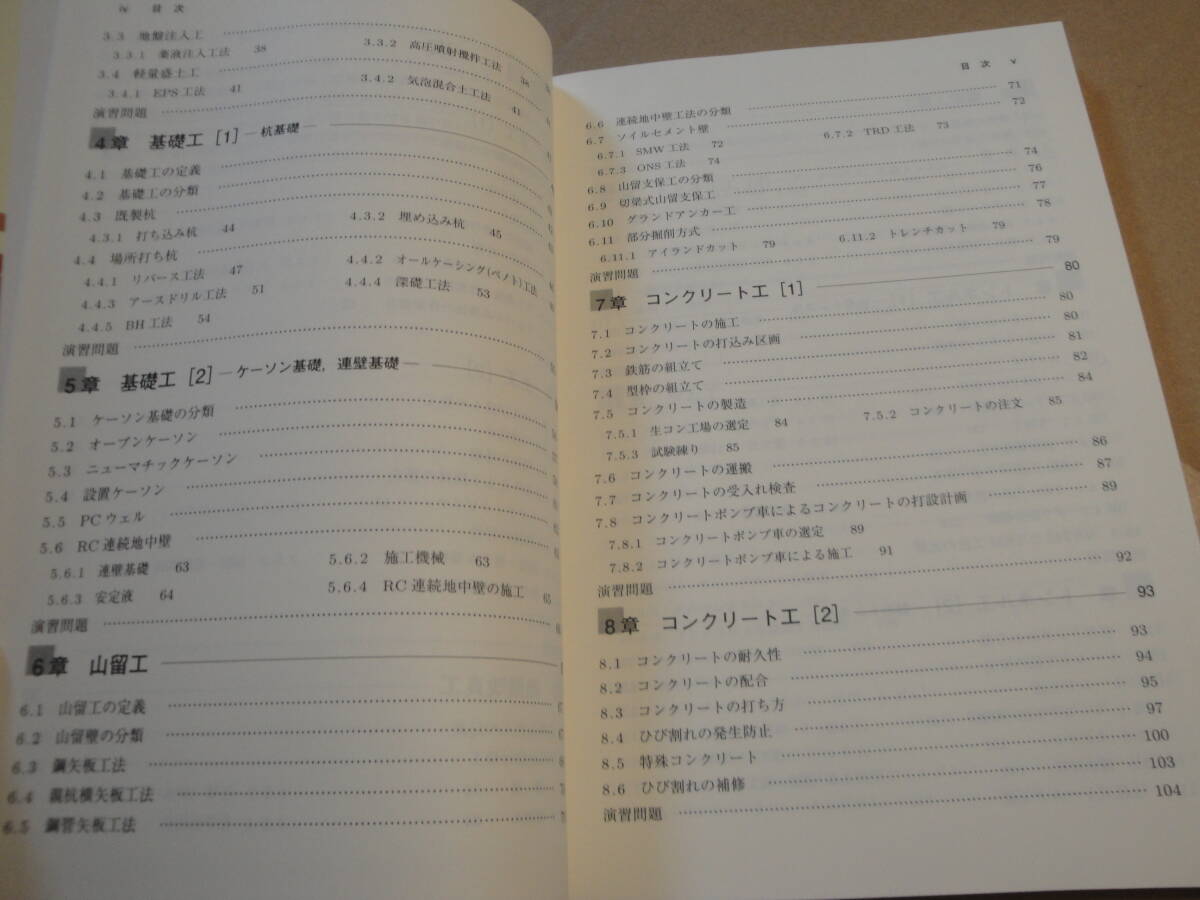 iv 目 次
3.3 地盤注入工
3.3.1 薬液注入工法 38 3.3.2 高圧噴射攪拌工法 38
3.4 軽量盛土工
3.4.1 EPS工法 41 3.4.2 気泡混合土工法 41
演習問題
4章 基礎工[1] —杭基礎—
4.1 基礎工の定義
4.2 基礎工の分類
4.3 既製杭
4.3.1 打ち込み杭 44 4.3.2 埋め込み杭 45
4.4 場所打ち杭
4.4.1 リバース工法 47 4.4.2 オールケーシング(ベノト)工法
4.4.3 アースドリル工法 51 4.4.4 深礎工法 53
4.4.5 BH工法 54
演習問題
5章 基礎工[2] —ケーソン基礎,連壁基礎—
5.1 ケーソン基礎の分類
5.2 オープンケーソン
5.3 ニューマチックケーソン
5.4 設置ケーソン
5.5 PCウェル
5.6 RC連続地中壁
5.6.1 連壁基礎 63 5.6.2 施工機械 63
5.6.3 安定液 64 5.6.4 RC連続地中壁の施工 65
演習問題
6章 山留工
6.1 山留工の定義
6.2 山留壁の分類
6.3 鋼矢板工法
6.4 親杭横矢板工法
6.5 鋼管矢板工法
目 次 v
6.6 連続地中壁工法の分類 71
6.7 ソイルセメント壁 72
6.7.1 SMW工法 72 6.7.2 TRD工法 73
6.7.3 ONS工法 74
6.8 山留支保工の分類 74
6.9 切梁式山留支保工 76
6.10 グランドアンカー工 77
6.11 部分掘削方式 78
6.11.1 アイランドカット 79 6.11.2 トレンチカット 79
演習問題 79
7章 コンクリート工[1] 80
7.1 コンクリートの施工 80
7.2 コンクリートの打込み区画 80
7.3 鉄筋の組立て 81
7.4 型枠の組立て 82
7.5 コンクリートの製造 84
7.5.1 生コン工場の選定 84 7.5.2 コンクリートの注文 85
7.5.3 試験練り 85
7.6 コンクリートの運搬 86
7.7 コンクリートの受入れ検査 87
7.8 コンクリートポンプ車によるコンクリートの打設計画 89
7.8.1 コンクリートポンプ車の選定 89
7.8.2 コンクリートポンプ車による施工 91
演習問題 92
8章 コンクリート工[2] 93
8.1 コンクリートの耐久性 93
8.2 コンクリートの配合 94
8.3 コンクリートの打ち方 95
8.4 ひび割れの発生防止 97
8.5 特殊コンクリート 100
8.6 ひび割れの補修 103
演習問題 104